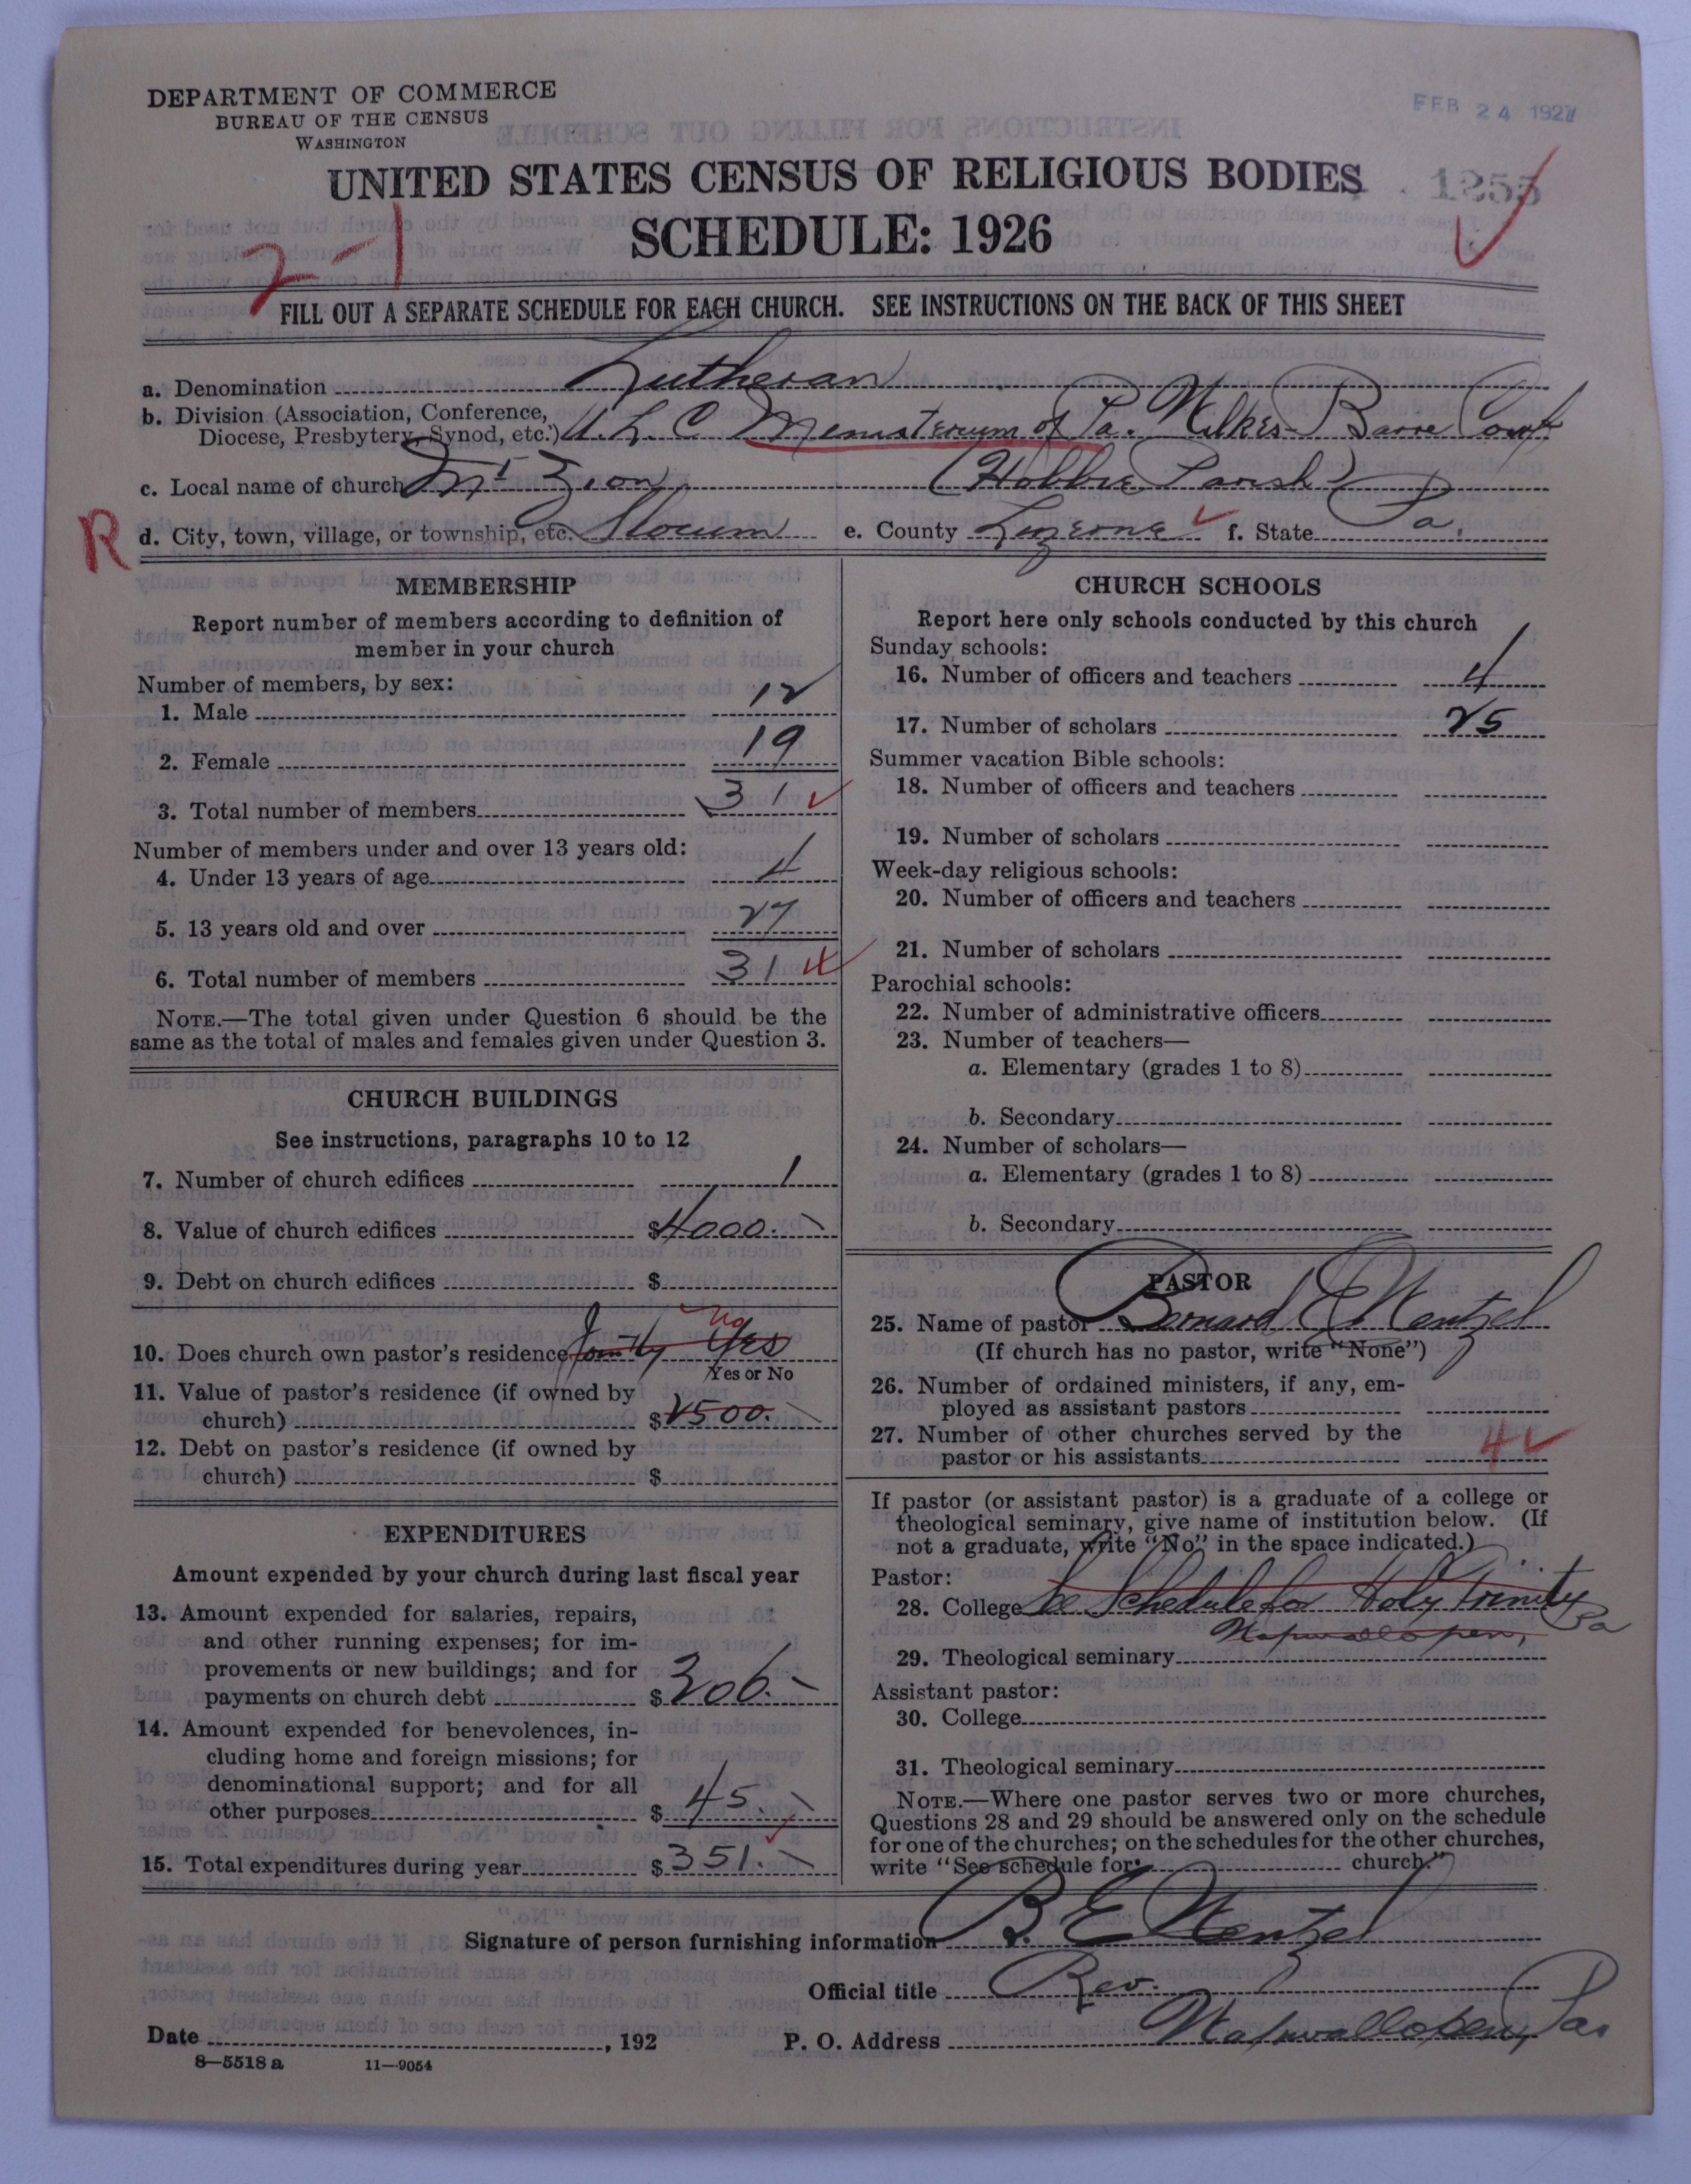 DEPARTMENT OF COMMERCE
BUREAU OF THE CENSUS
WASHINGTON
FEB 24 1927
UNITED STATES CENSUS OF RELIGIOUS BODIES
1255
SCHEDULE: 1926
2-1
FILL OUT A SEPARATE SCHEDULE FOR EACH CHURCH. SEE INSTRUCTIONS ON THE BACK OF THIS SHEET
a. Denomination Lutheran
b. Division (Association, Conference,
Diocese, Presbytery, Synod, etc.) U.L.C Ministerium of Pa. Wilkes-Barre Conf
c. Local name of church Mt Zion (Hobbie Parish)
R d. City, town, village, or township, etc. Slocum e. County Luzerne f. State Pa.
MEMBERSHIP
Report number of members according to definition of
member in your church
Number of members, by sex:
1. Male 12
2. Female 19
3. Total number of members 31
Number of members under and over 13 years old:
4. Under 13 years of age 4
5. 13 years old and over 27
6. Total number of members 31 4
NOTE.—The total given under Question 6 should be the
same as the total of males and females given under Question 3.
CHURCH BUILDINGS
See instructions, paragraphs 10 to 12
7. Number of church edifices 1
8. Value of church edifices $4000.-
9. Debt on church edifices $
no
10. Does church own pastor's residence Jointly Yes
Yes or No
11. Value of pastor's residence (if owned by
church) $2500.-
12. Debt on pastor's residence (if owned by
church) $
EXPENDITURES
Amount expended by your church during last fiscal year
13. Amount expended for salaries, repairs,
and other running expenses; for im-
provements or new buildings; and for
payments on church debt $306.-
14. Amount expended for benevolences, in-
cluding home and foreign missions; for
denominational support; and for all
other purposes $45.-
15. Total expenditures during year $351.-
CHURCH SCHOOLS
Report here only schools conducted by this church
Sunday schools:
16. Number of officers and teachers 4
17. Number of scholars 25
Summer vacation Bible schools:
18. Number of officers and teachers
19. Number of scholars
Week-day religious schools:
20. Number of officers and teachers
21. Number of scholars
Parochial schools:
22. Number of administrative officers
23. Number of teachers—
a. Elementary (grades 1 to 8)
b. Secondary
24. Number of scholars—
a. Elementary (grades 1 to 8)
b. Secondary
PASTOR
25. Name of pastor Bernard E Wentzel
(If church has no pastor, write "None")
26. Number of ordained ministers, if any, em-
ployed as assistant pastors
27. Number of other churches served by the
pastor or his assistants 4
If pastor (or assistant pastor) is a graduate of a college or
theological seminary, give name of institution below. (If
not a graduate, write "No" in the space indicated.)
Pastor:
28. College See Schedule for Holy Trinity
Wapwallopen, Pa
29. Theological seminary
Assistant pastor:
30. College
31. Theological seminary
NOTE.—Where one pastor serves two or more churches,
Questions 28 and 29 should be answered only on the schedule
for one of the churches; on the schedules for the other churches,
write "See schedule for church."
Signature of person furnishing information B. E Wentzel
Official title Rev.
Date , 192 P. O. Address Wapwallopen, Pa
8—5518 a 11—9054